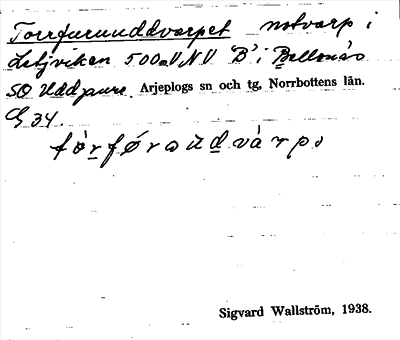 Torrfuruuddvarpet notvarp i
Lstjviken 500m V N V 'B' i Bellonäs
SO Uddjaure. Arjeplogs sn och tg, Norrbottens län.
G 34.
Sigvard Wallström, 1938.